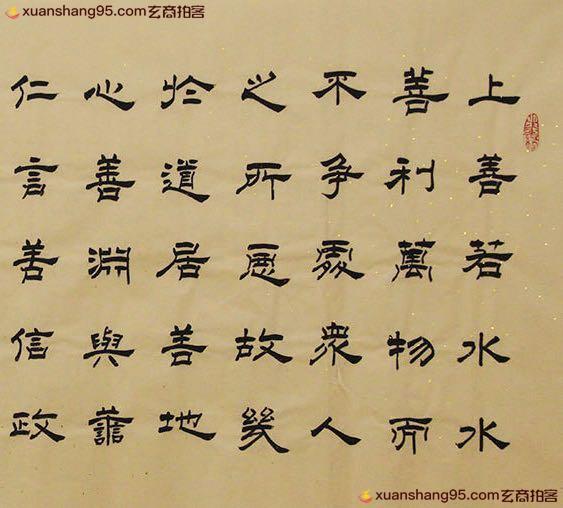 xuanshang95.com玄商拍客
上善若水水
善利萬物而
不争處衆人
之所惡故幾
於道居善地
心善淵與譱
仁言善信政
xuanshang95.com玄商拍客